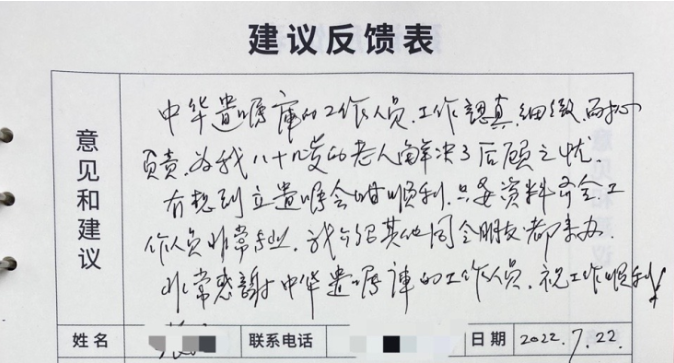 建议反馈表
意见和建议
中华遗嘱库的工作人员.工作認真.细緻.耐心
負责.为我八十几岁的老人解决了后顾之忧.
有想到立遗嘱会咁順利.只要资料齐全工
作人员非常专业.我介绍其他同仝朋友都来办.
非常感謝中华遗嘱庫的工作人员.祝工作順利
姓名 联系电话 日期 2022.7.22.